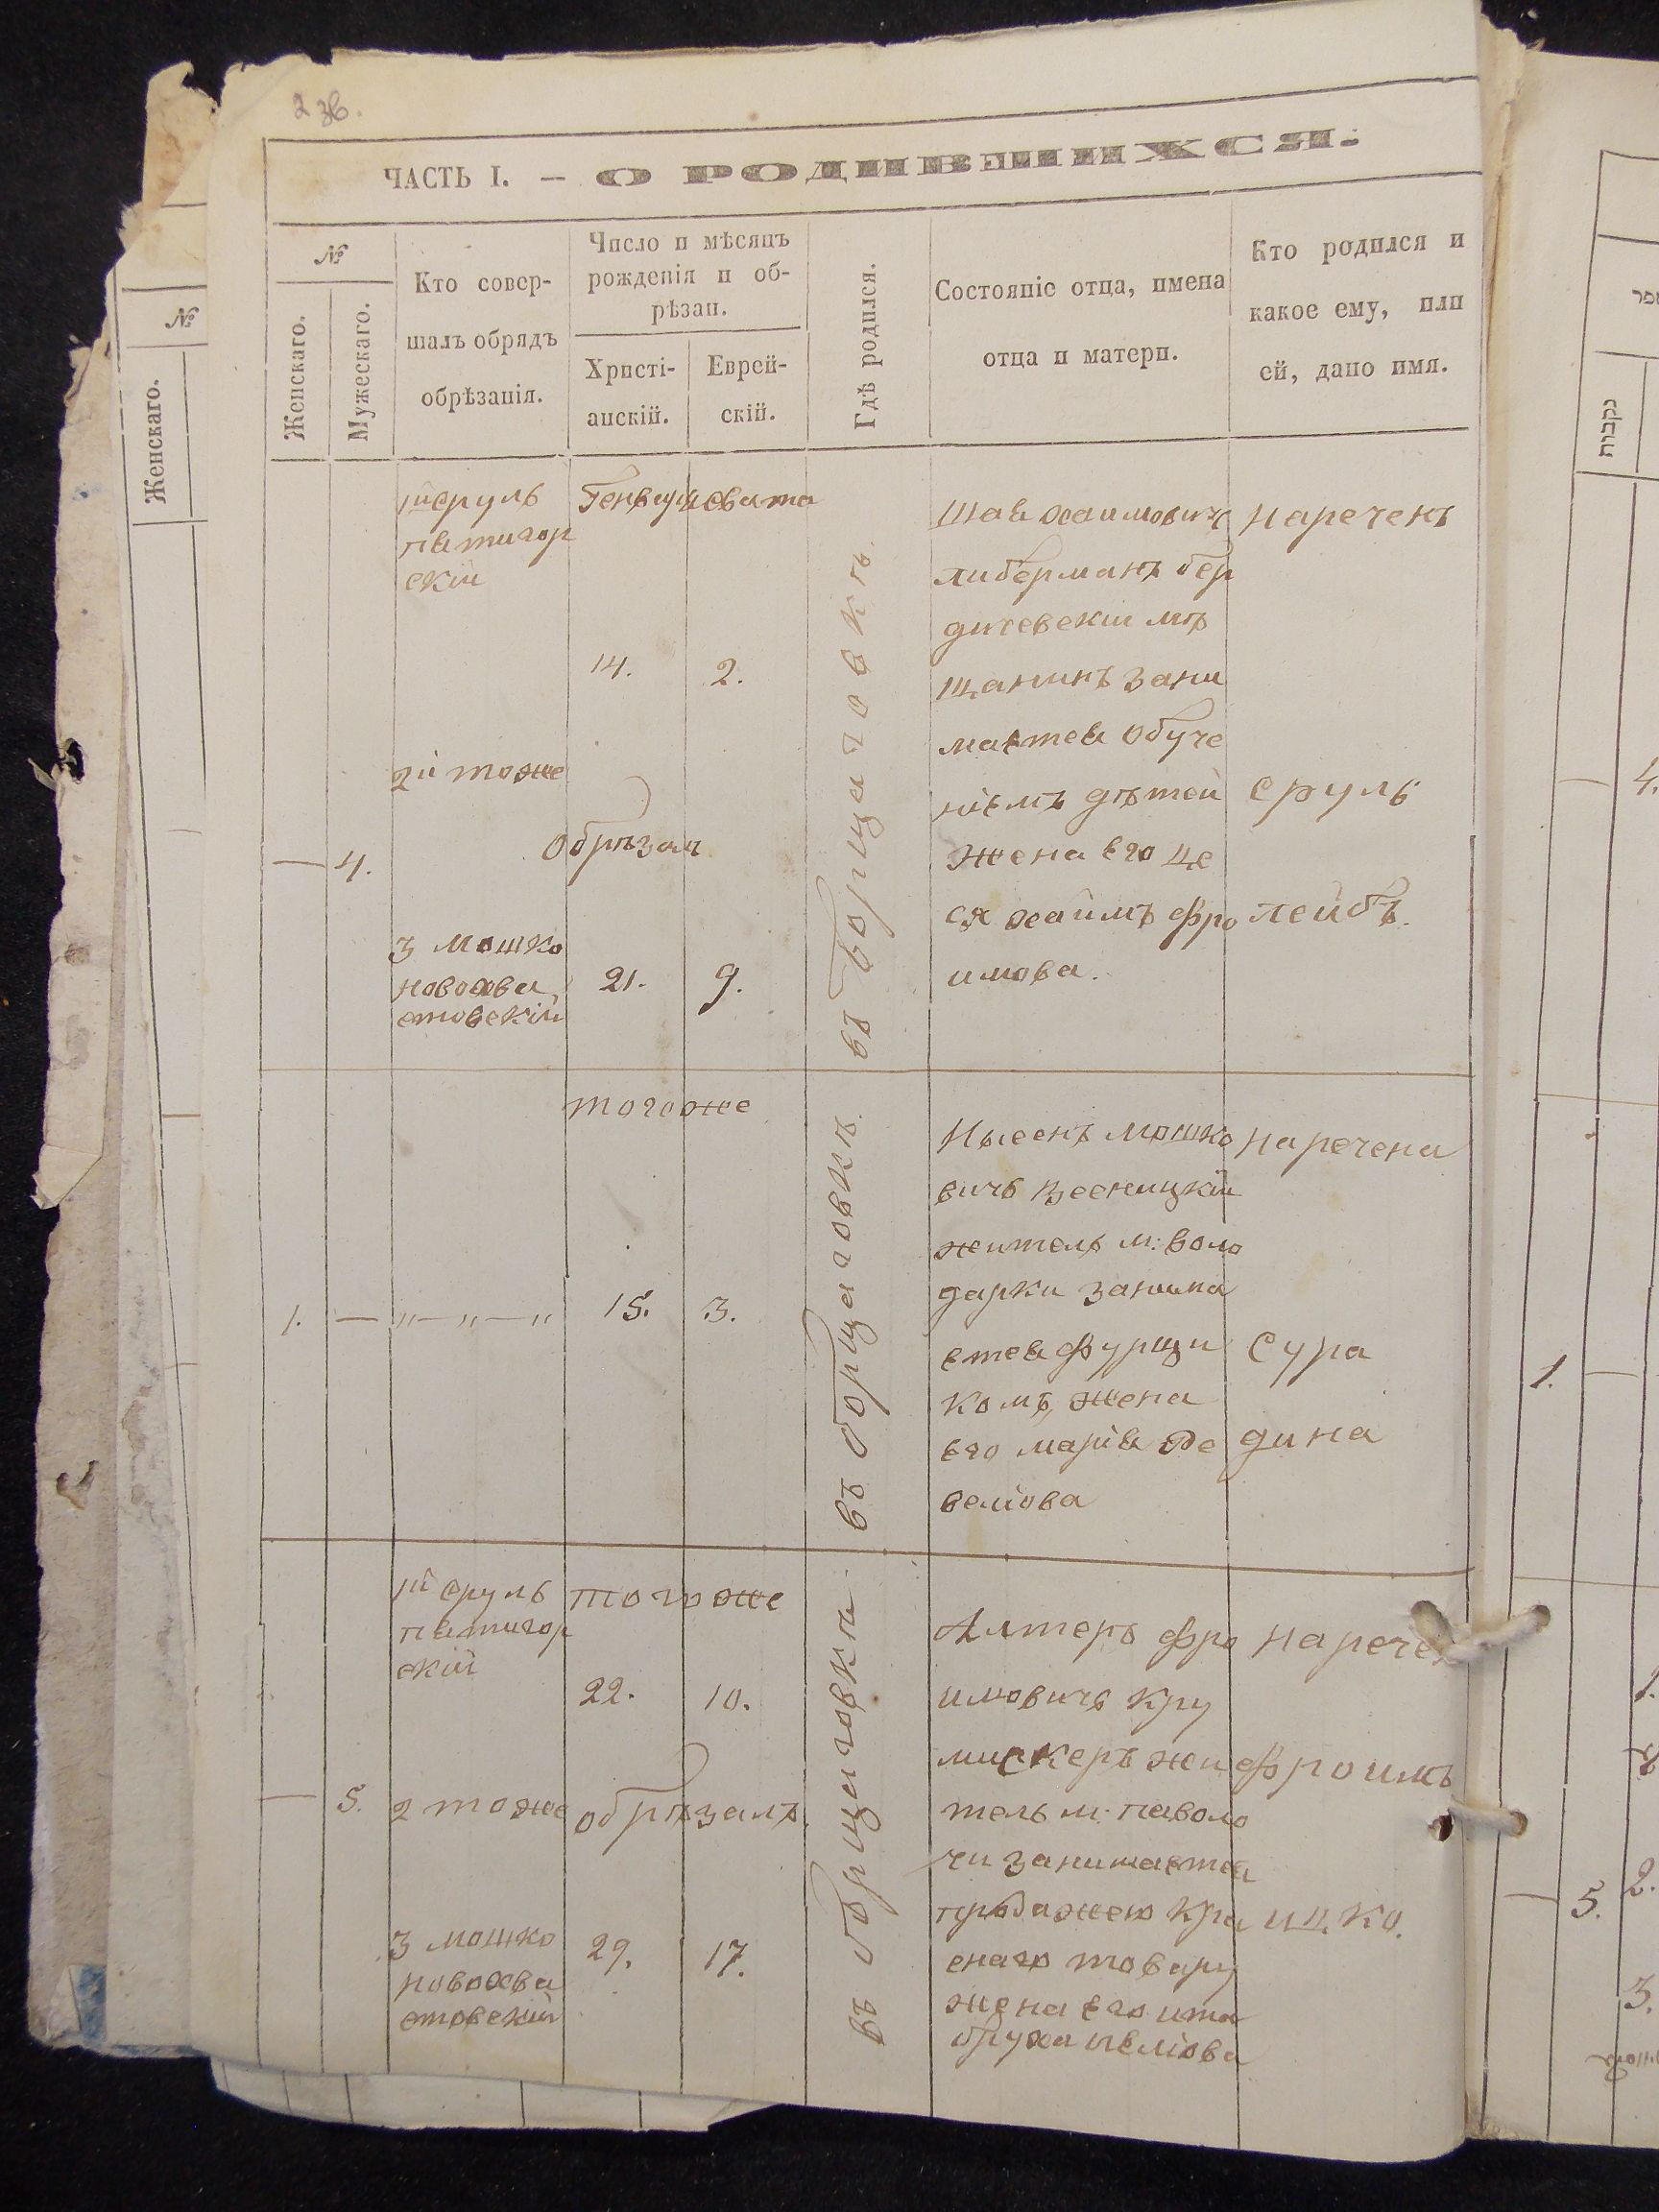 2 Ж.
ЧАСТЬ I. — О РОДИВШИХСЯ.
№
Женскаго.
Мужескаго.
Кто совер-
шалъ обрядъ
обрѣзанія.
Число и мѣсяцъ
рожденія и об-
рѣзан.
Христі-
анскій.
Еврей-
скій.
Гдѣ родился.
Состояніе отца, имена
отца и матери.
Кто родился и
какое ему, или
ей, дано имя.
—
4.
1й сруль
пятигор
скій
2й тоже
3 мошко
новохва
стовскій
Генваря
14.
2.
Обрѣзан
21.
9.
въ борщаговкѣ.
хаимовичъ
либерманъ бер
дичевскій мѣ
щанинъ зани
мается обуче
ніемъ дѣтей
жена его це
ся хаимъ фро
имова.
Нареченъ
сруль
лейбъ.
1.
—
"—"—"
тогоже
15.
3.
въ борщаговкѣ.
Нысенъ мошко
вичъ
житель м: воло
дарки занима
ется фурщи
комъ, жена
его марія
наречена
сура
дина
—
5.
1й сруль
пятигор
скій
2 тоже
3 мошко
новохва
стовскій
тогоже
22.
10.
обрѣзанъ.
29.
17.
въ борщаговкѣ.
Алтеръ фро
имовичъ кру
житель м. паволо
чи занимается
продажею кра
снаго товару
жена его ита
бруха
нарече
фроимъ
ицко.
№
Женскаго.
נקבות
4.
1.
5.
1.
2.
3.